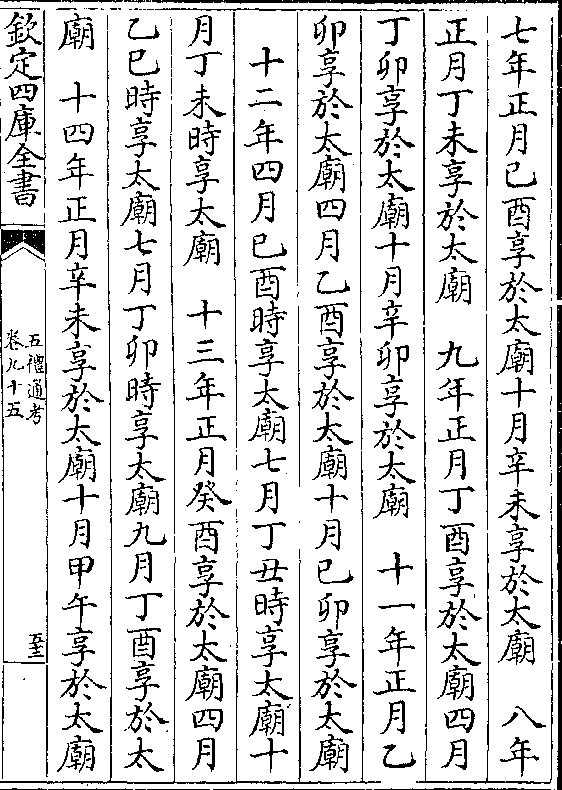 七年正月己酉享於太廟十月辛未享於太廟　八年
正月丁未享於太廟　九年正月丁酉享於太廟四月
丁卯享於太廟十月辛卯享於太廟　十一年正月乙
卯享於太廟四月乙酉享於太廟十月己卯享於太廟
十二年四月己酉時享太廟七月丁丑時享太廟十
月丁未時享太廟　十三年正月癸酉享於太廟四月
乙巳時享太廟七月丁卯時享太廟九月丁酉享於太
廟　十四年正月辛未享於太廟十月甲午享於太廟
欽定四庫全書
五禮通考
卷九十五
至三